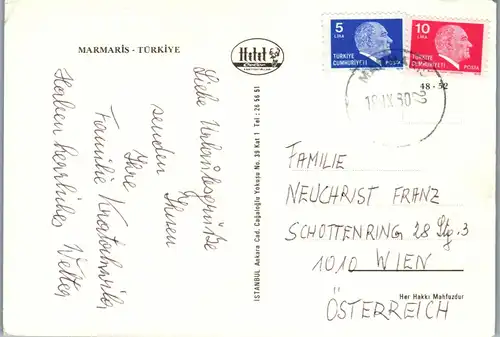 MARMARİS - TÜRKİYE
Hitit
Liebe Urlaubsgrüße
senden Ihnen
Ihre
Familie
Haben herrliches Wetter
İSTANBUL Ankara Cad. Cağaloğlu Yokuşu No. 35 Kat 1 Tel : 26 56 51
5
LİRA
TÜRKİYE
CUMHURİYETİ
POSTA
10
LİRA
TÜRKİYE
CUMHURİYETİ
POSTA
48 - 52
FAMILIE
NEUCHRIST FRANZ
SCHOTTENRING 28 Stg. 3
1010 WIEN
ÖSTERREICH
Her Hakkı Mahfuzdur